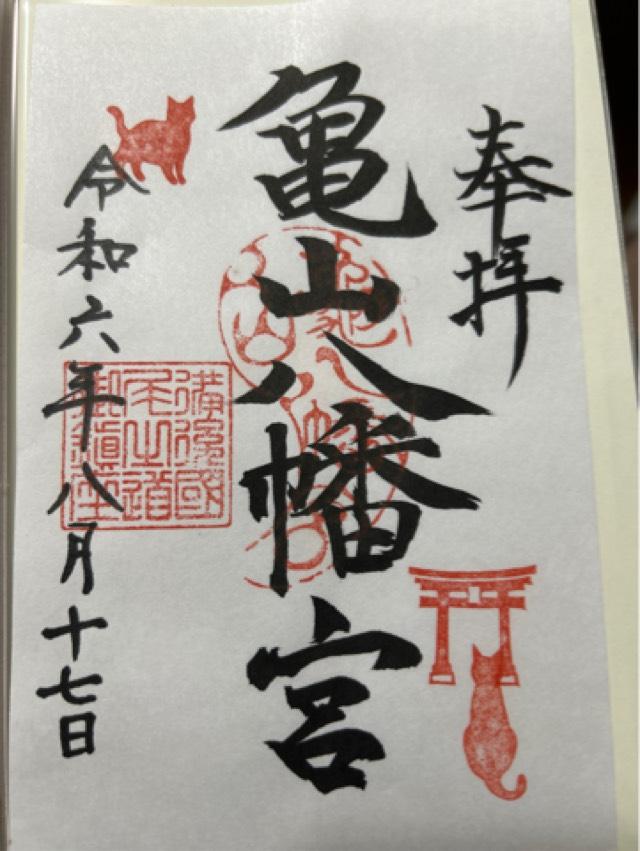 奉拝
亀山八幡宮
令和六年八月十七日
備後國
尾之道
御鎮座